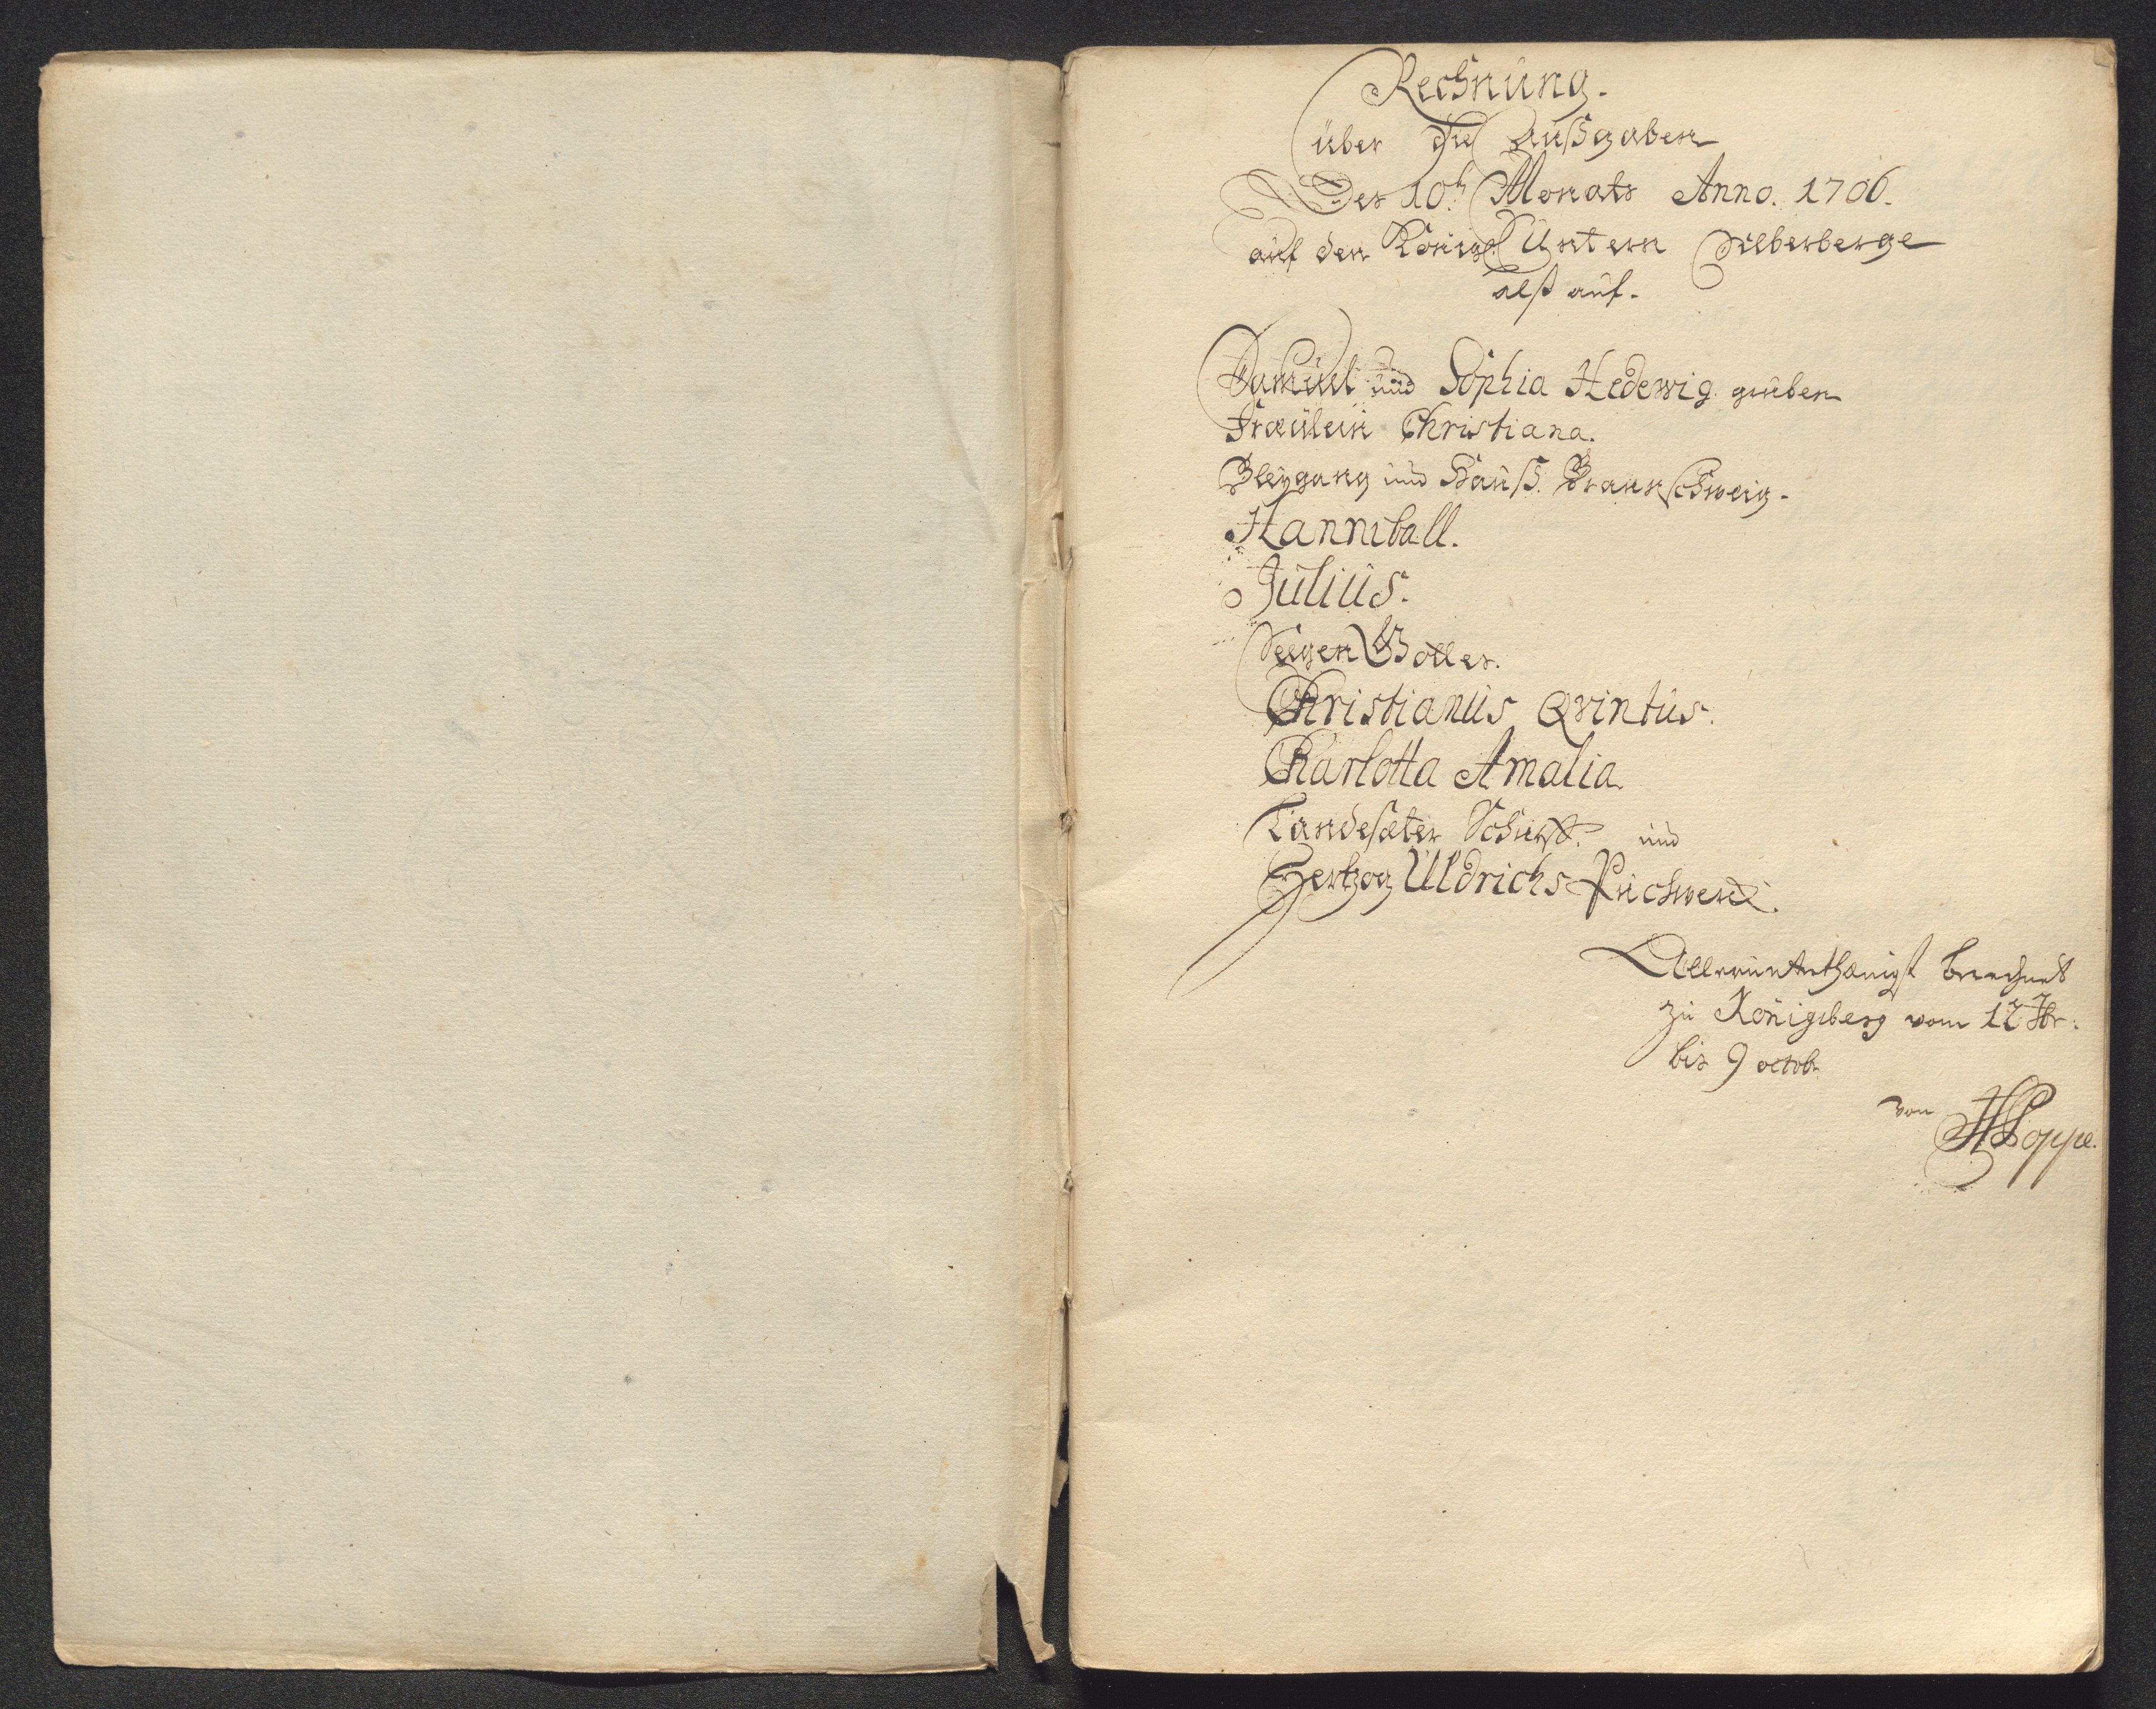 Rechnung.
über die Außgaben
Des 10t Monats Anno. 1706.
auf den Königl. Untern Silberberge
alß auf.
Samuel und Sophia Hedewig gruben
Fræulein Christiana.
Bleygang und Hauß Braunschweig.
Hanniball.
Julius.
Seegen Gottes.
Christianus Qvintus.
Charlotta Amalia.
Landesæter Schurff. und
Hertzog Uldrichs Puchwerck.
Allerunterthænigst berechnet
zu Königsberg vom 12 7br:
bis 9 octobr
von HPoppe.